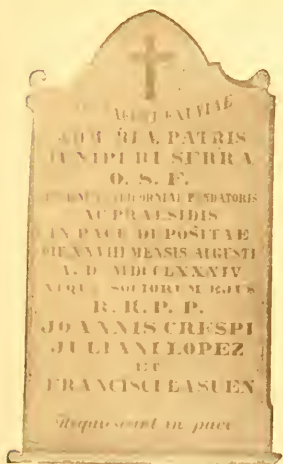 PATRIS
JUNIPERI SERRA
O. S. F.
FUNDATORIS
AC PRAESIDIS
IN PACE DEPOSITAE
DIE XXVIII MENSIS AUGUSTI
A. D. MDCCLXXXIV
SOCIORUM EJUS
R. R. P. P.
JOANNIS CRESPI
JULIANI LOPEZ
ET
FRANCISCI LASUEN
Requiescant in pace